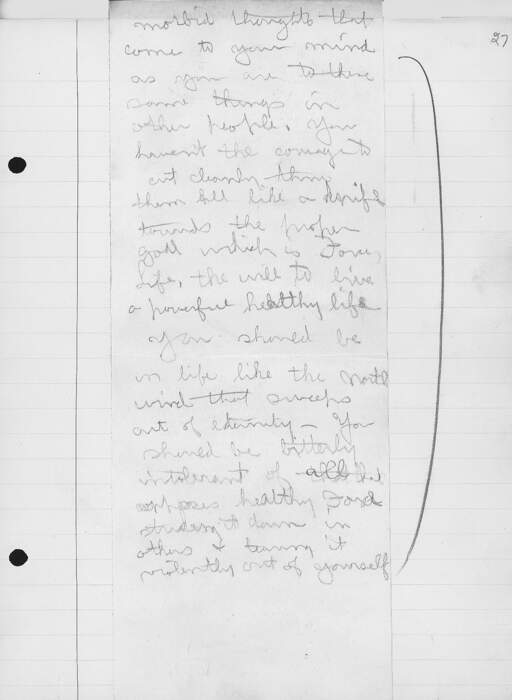 morbid thoughts that
27
come to your mind
as you are to these
same things in
other people. You
haven't the courage to
cut cleanly thru
them all like a knife
towards the proper
goal which is Force,
Life, the will to live
a powerful healthy life
You should be
in life like the North
wind that sweeps
out of eternity – You
should be bitterly
intolerant of all that
opposes healthy Force
down in
others + tearing it
violently out of yourself